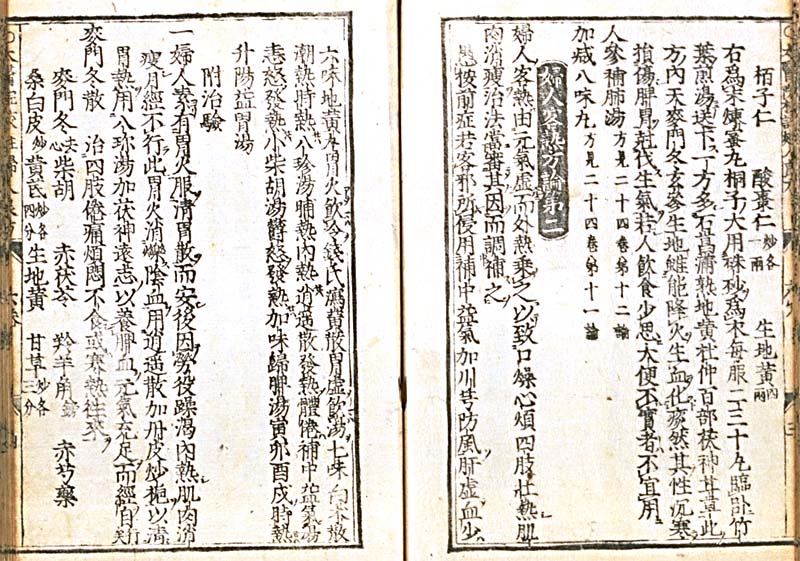 栢子仁 酸棗仁炒各一兩 生地黄四兩
右爲末煉蜜丸桐子大用硃砂爲衣每服二三十丸臨卧竹
葉煎湯送下一方多石菖蒲熟地黄杜仲百部茯神甘草此
方內天麥門冬玄參生地雖能降火生血化痰然其性沉寒
損傷脾胃尅伐生氣若人飲食少思大便不實者不宜用
人參補肺湯方見二十四卷第十二論
加减八味丸方見二十四卷第十一論
婦人客熱方論第二
婦人客熱由元氣虛而外熱乗之以致口燥心煩四肢壯熱肌
肉消瘦治法當審其因而調補之
愚按前症若客邪所侵用補中益氣加川芎防風肝虛血少
六味地黄丸胃火飲冷錢氏瀉黄散胃虛飲湯七味白朮散
潮熱時熱八珍湯晡熱內熱逍遥散發熱體倦補中益氣湯
恚怒發熱小柴胡湯欝怒發熱加味歸脾湯寅卯酉戌時熱
升陽益胃湯
附治驗
一婦人素有胃火服清胃散而安後因勞役躁渴內熱肌肉消
瘦月經不行此胃火消爍陰血用逍遥散加丹皮炒梔以清
胃熱用八珍湯加茯神遠志以養脾血元氣充足而經自行
麥門冬散 治四肢倦痛煩悶不食或寒熱往來
麥門冬去心 柴胡 赤茯苓 羚羊角 赤芍藥
桑白皮炒 黄芪炒各四分 生地黄 甘草炒各三分